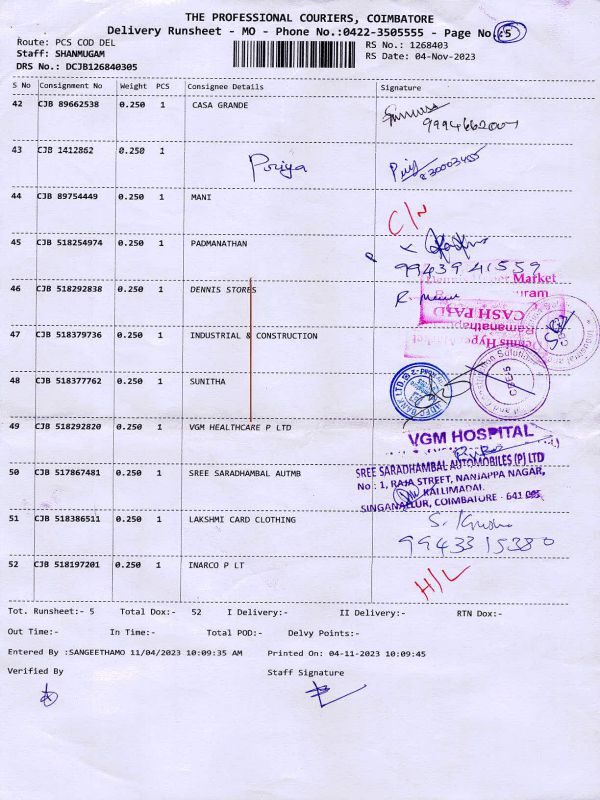 THE PROFESSIONAL COURIERS, COIMBATORE
Delivery Runsheet - MO - Phone No.:0422-3505555 - Page No.:5
Route: PCS COD DEL
RS No.: 1268403
Staff: SHANMUGAM
RS Date: 04-Nov-2023
DRS No.: DCJB126840305
S No Consignment No Weight PCS Consignee Details Signature
42 CJB 89662538 0.250 1 CASA GRANDE
43 CJB 1412862 0.250 1 Priya
44 CJB 89754449 0.250 1 MANI C/N
45 CJB 518254974 0.250 1 PADMANATHAN
9943941559
46 CJB 518292838 0.250 1 DENNIS STORES
Market
CASH PAID
47 CJB 518379736 0.250 1 INDUSTRIAL & CONSTRUCTION
48 CJB 518377762 0.250 1 SUNITHA
49 CJB 518292820 0.250 1 VGM HEALTHCARE P LTD
VGM HOSPITAL
50 CJB 517867481 0.250 1 SREE SARADHAMBAL AUTMB
SREE SARADHAMBAL AUTOMOBILES (P) LTD
No : 1, RAJA STREET, NANJAPPA NAGAR,
KALLIMADAI,
SINGANALLUR, COIMBATORE - 641 005
51 CJB 518386511 0.250 1 LAKSHMI CARD CLOTHING
9943315380
52 CJB 518197201 0.250 1 INARCO P LT H/L
Tot. Runsheet:- 5 Total Dox:- 52 I Delivery:- II Delivery:- RTN Dox:-
Out Time:- In Time:- Total POD:- Delvy Points:-
Entered By :SANGEETHAMO 11/04/2023 10:09:35 AM Printed On: 04-11-2023 10:09:45
Verified By Staff Signature